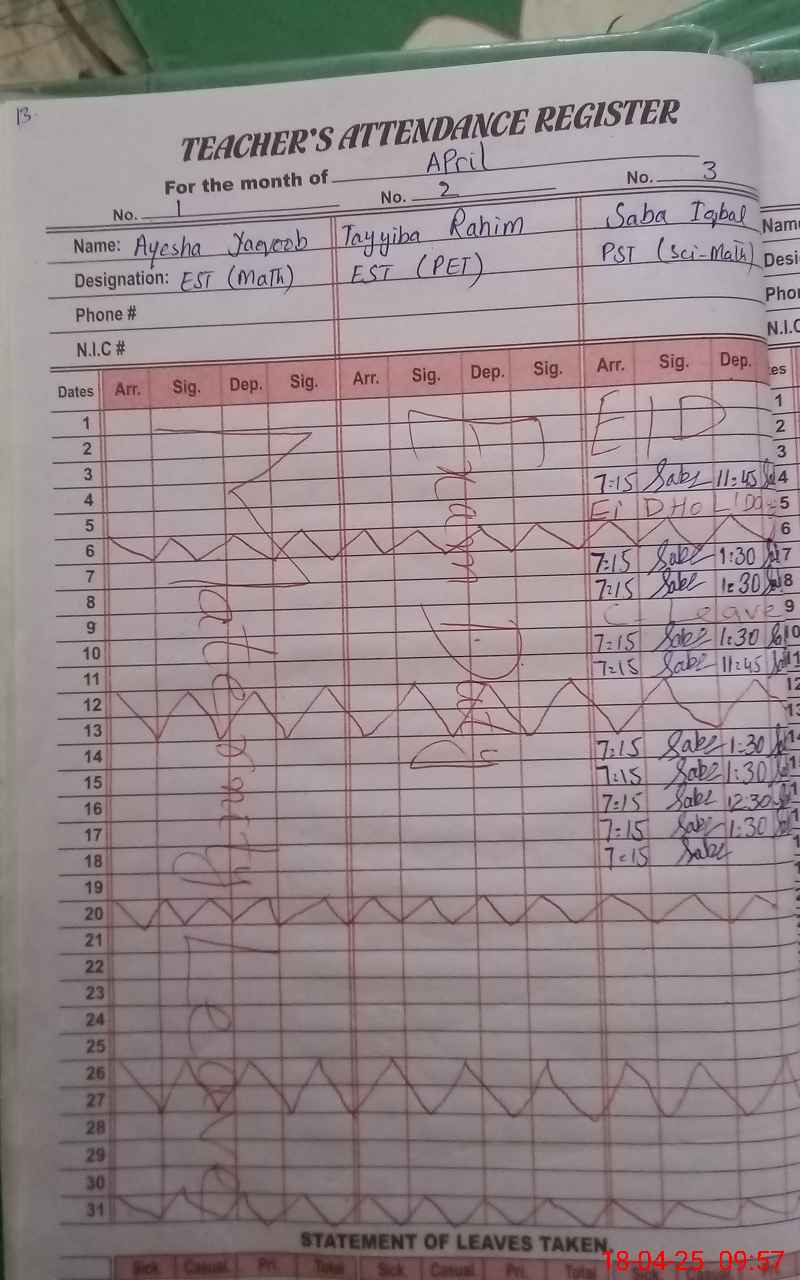 13
TEACHER'S ATTENDANCE REGISTER
For the month of April
No. 1 No. 2 No. 3
Name: Ayesha Yaqoob Tayyiba Rahim Saba Iqbal Name
Designation: EST (Math) EST (PET) PST (Sci-Math) Desi
Phone # Phon
N.I.C # N.I.C
Dates Arr. Sig. Dep. Sig. Arr. Sig. Dep. Sig. Arr. Sig. Dep. es
1 EID 1
2 2
3 3
4 7:15 Saba 11:45 4
5 EiD Holiday 5
6 6
7 7:15 Saba 1:30 7
8 7:15 Saba 1:30 8
9 C. Leave 9
10 7:15 Saba 1:30 10
11 7:15 Saba 11:45 11
12 12
13 13
14 7:15 Saba 1:30
15 7:15 Saba 1:30
16 7:15 Saba 12:30
17 7:15 Saba 1:30
18 7:15 Saba
19
20
21
22
23
24
25
26
27
28
29
30
31
Maternity Leave
On Duty
STATEMENT OF LEAVES TAKEN
Sick Casual Pri. Total Sick Casual Pri. Total
18-04-25 09:57